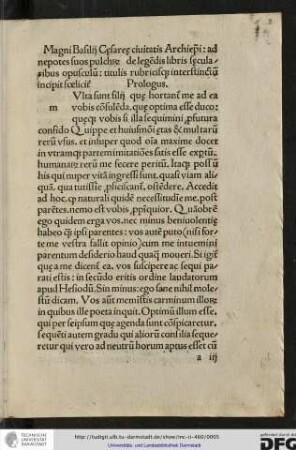 Magni Basilij Cęsareę ciuitatis Archiepĩ: ad
nepotes suos pulchrę de legẽdis libris sęcula
ribus opusculũ: titulis rubricisq; interstinctũ
incipit fœliciť Prologus.
Vlta sunt filij quę hortant me ad ea
m vobis cõsulẽda, quę optima esse duco:
quęq; vobis si illa sequimini, ꝓfutura
confido Quippe et huiusmõi ętas & multarũ
rerũ vsus. et insuper quod oĩa maxime docet
in vtramq; partem imitatiões satis esse exptũ,
humanarũ rerũ me fecere peritũ. Itaq; possũ
his qui nuper vitã ingressi sunt, quasi viam ali
quã. qua tutissime ꝓficiscanť, ostẽdere. Accedit
ad hoc, ꝙ naturali quidẽ necessitudĩe me, post
parẽtes. nemo est vobis, ꝓpiquior. Quãobrẽ
ego quidem erga vos, nec minus beniuolentię
habeo ꝗ̃ ipsi parentes: vos autẽ puto (nisi for
te me vestra fallit opinio) cum me intuemini
parentum desiderio haud quaꝗ̃ moueri. Si igiť
quę a me dicenť ea. vos suscipere ac sequi pa
rati estis: in secũdo eritis ordine laudatorum
apud Hesiodũ. Sin minus: ego sane nihil mole
stũ dicam. Vos aũt memistis carminum illorũ
in quibus ille poeta inquit. Optimũ illum esse.
qui per seipsum quę agenda sunt cõspicaretur,
sequẽti autem gradu qui aliorũ consilia seque
retur qui vero ad neutrũ horum aptus esset eũ
a iij
TECHNISCHE
UNIVERSITÄT
DARMSTADT
http://tudigit.ulb.tu-darmstadt.de/show/inc-ii-460/0005
Universitäts- und Landesbibliothek Darmstadt
gefördert durch die
DFG